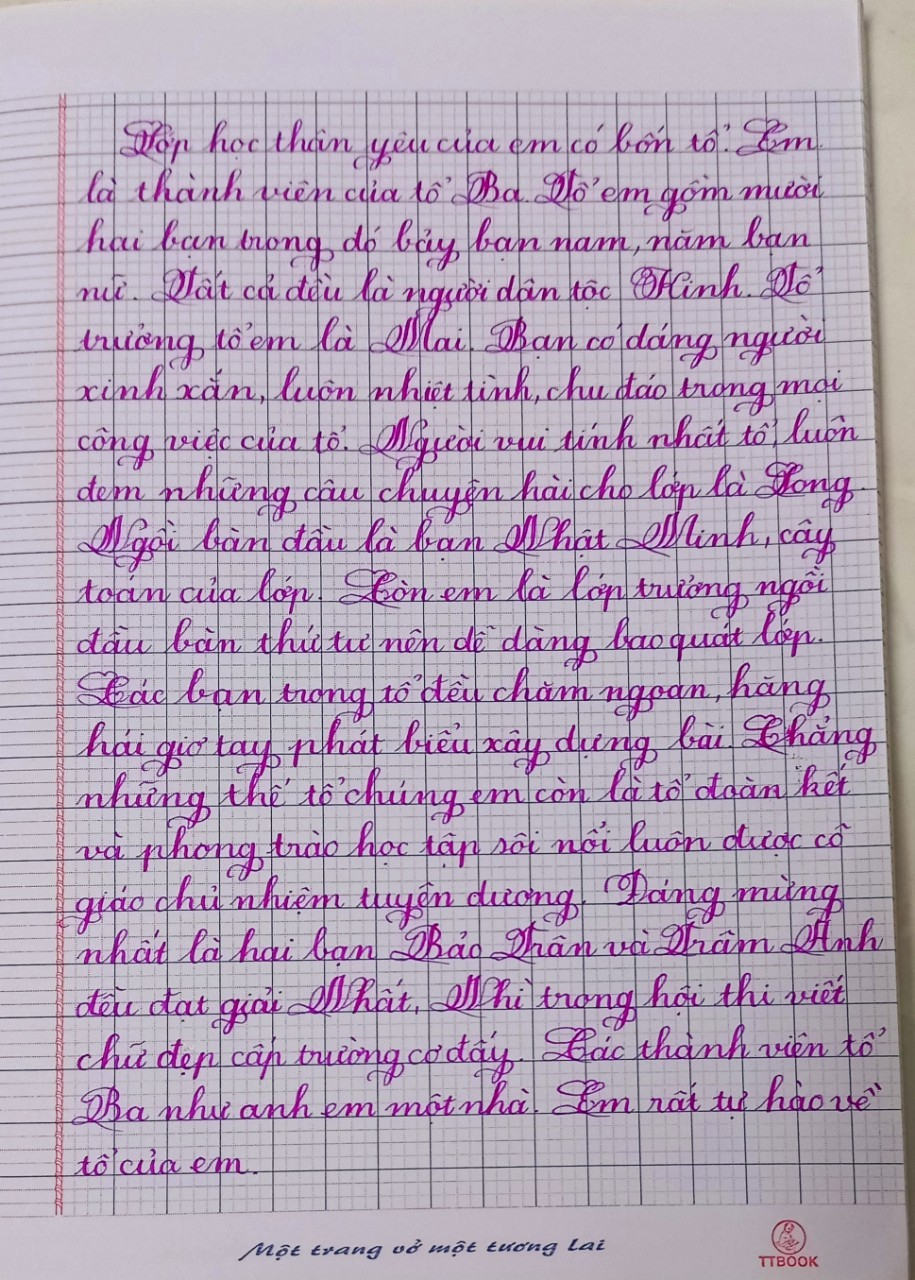 Lớp học thân yêu của em có bốn tổ. Em
là thành viên của tổ Ba. Tổ em gồm mười
hai bạn trong đó bảy bạn nam, năm bạn
nữ. Tất cả đều là người dân tộc Kinh. Tổ
trưởng tổ em là Mai. Bạn có dáng người
xinh xắn, luôn nhiệt tình, chu đáo trong mọi
công việc của tổ. Người vui tính nhất tổ, luôn
đem những câu chuyện hài cho lớp là Long.
Ngồi bàn đầu là bạn Nhật Minh, cây
toán của lớp. Còn em là lớp trưởng ngồi
đầu bàn thứ tư nên dễ dàng bao quát lớp.
Các bạn trong tổ đều chăm ngoan, hăng
hái giơ tay phát biểu xây dựng bài. Chẳng
những thế tổ chúng em còn là tổ đoàn kết
và phong trào học tập sôi nổi luôn được cô
giáo chủ nhiệm tuyên dương. Đáng mừng
nhất là hai bạn Bảo Trân và Trâm Anh
đều đạt giải Nhất, Nhì trong hội thi viết
chữ đẹp cấp trường cơ đấy. Các thành viên tổ
Ba như anh em một nhà. Em rất tự hào về
tổ của em.
Một trang vở một tương lai
TTBOOK